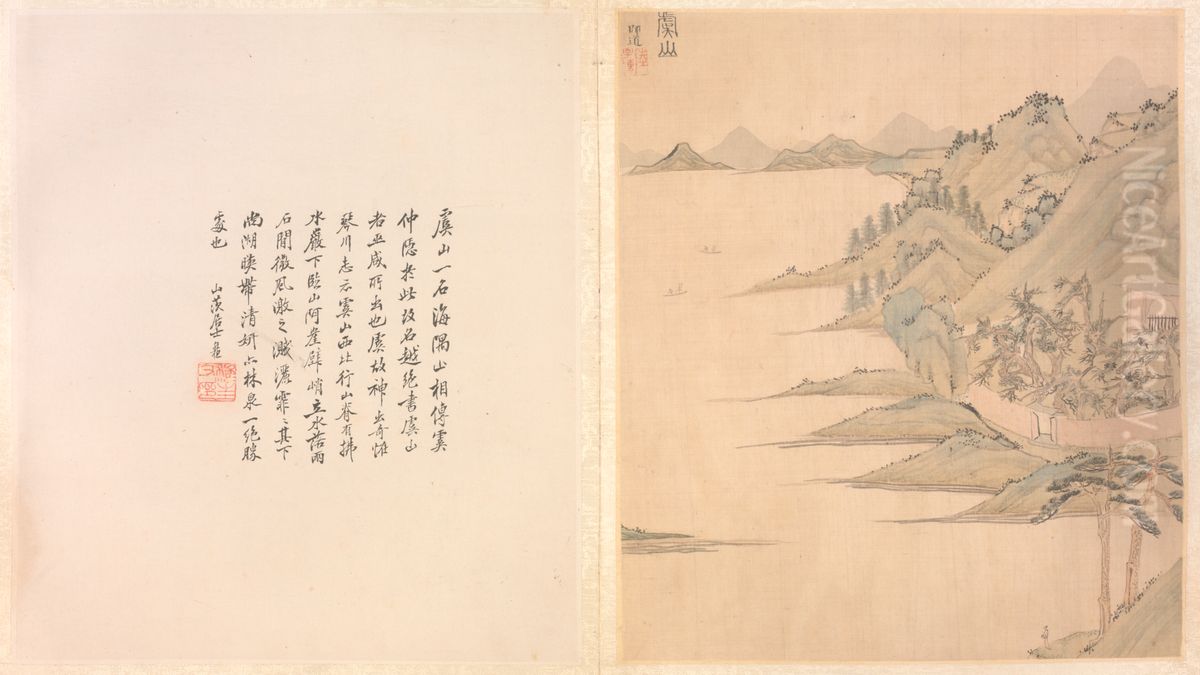 虞山
虞山一名海隅山相傳虞
仲隱於此故名越絕書虞山
者巫咸所出也虞故神出奇怪
琴川志云虞山西北行山脊有拂
水巖下臨山阿崖壁峭立水落兩
石間微風激之濺灑霏〻其下
尚湖映帶清妍亦林泉一絕勝
處也
山茨居士
NiceArtGallery.com